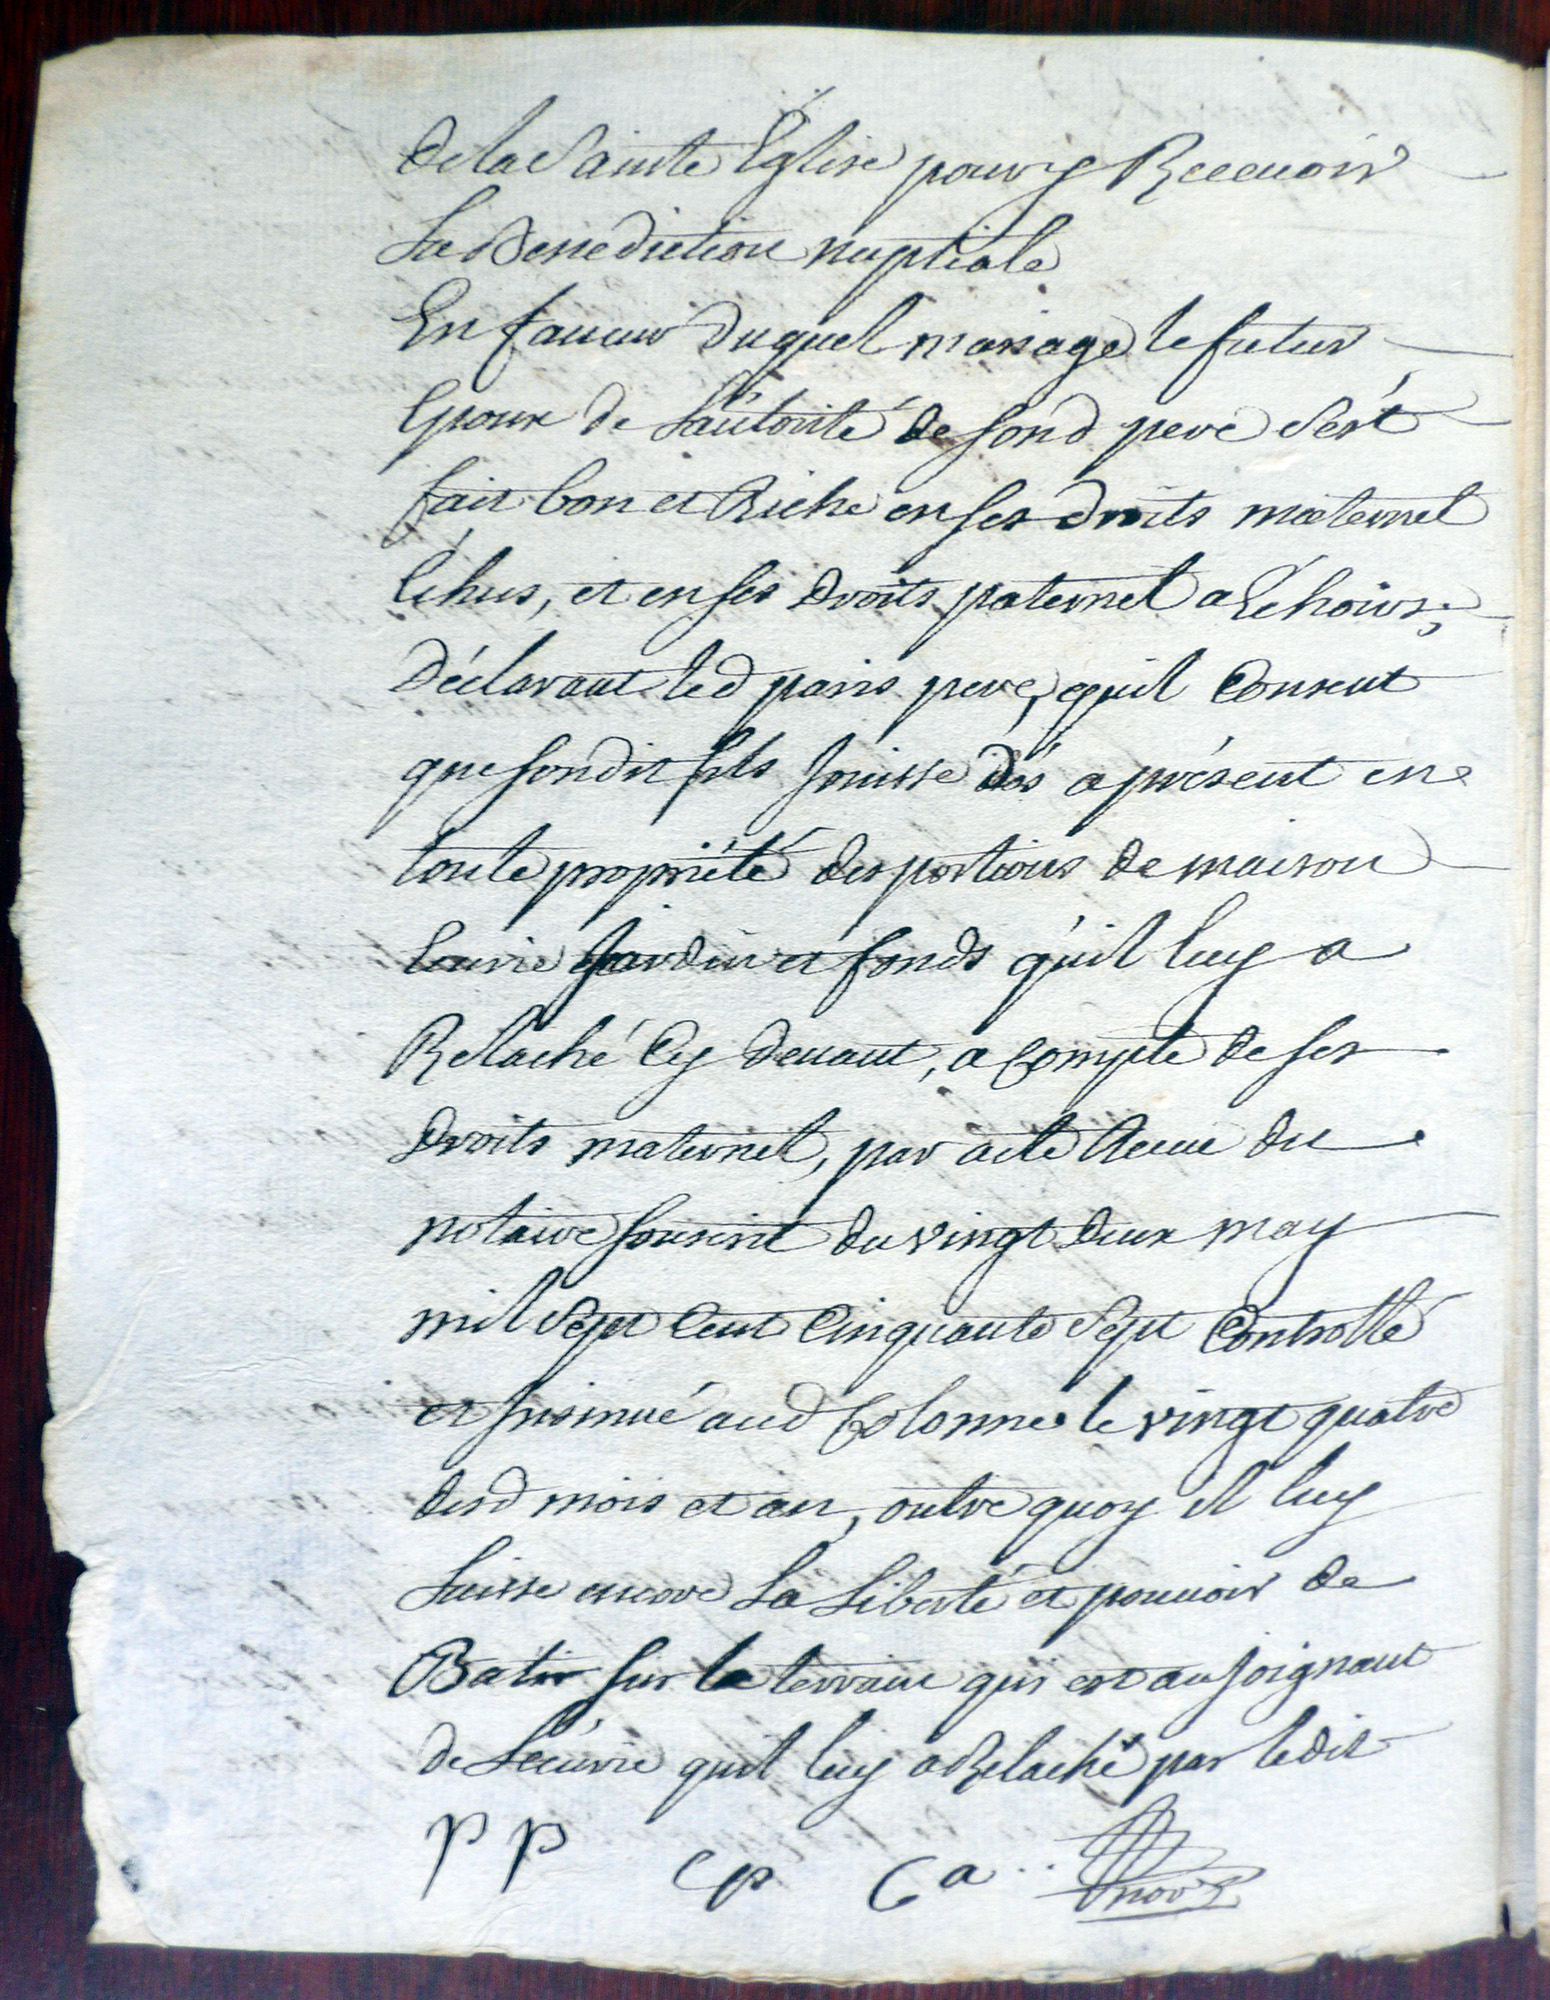 de la Sainte Église pour y Recevoir
La Benediction nuptiale
En faueur duquel mariage le futur
Epoux de L'autorité de Sond pere s'est
fait bon et Riche en ses droits maternel
Echus, et en ses droits paternel a Echoirs;
Déclarant led paris pere, quil Consent
que Sondit fils Jouisse dés a présent en
toute proprieté des portions de maison
Ecurie Jardin et fonds qu'il luy a
Relaché Cy deuant, a Compte de ses
droits maternel, par acte Receu du
notaire Soussigné du vingt deux may
mil Sept Cent Cinquante Sept Controllé
et Insinué aud Colonne le vingt quatre
desd mois et an, outre quoy il luy
Laisse encore La Liberté et pouuoir de
Batir Sur le terrain qui est au Joignant
de L'ecurie quil luy a Relaché par ledit
PP cp Ca